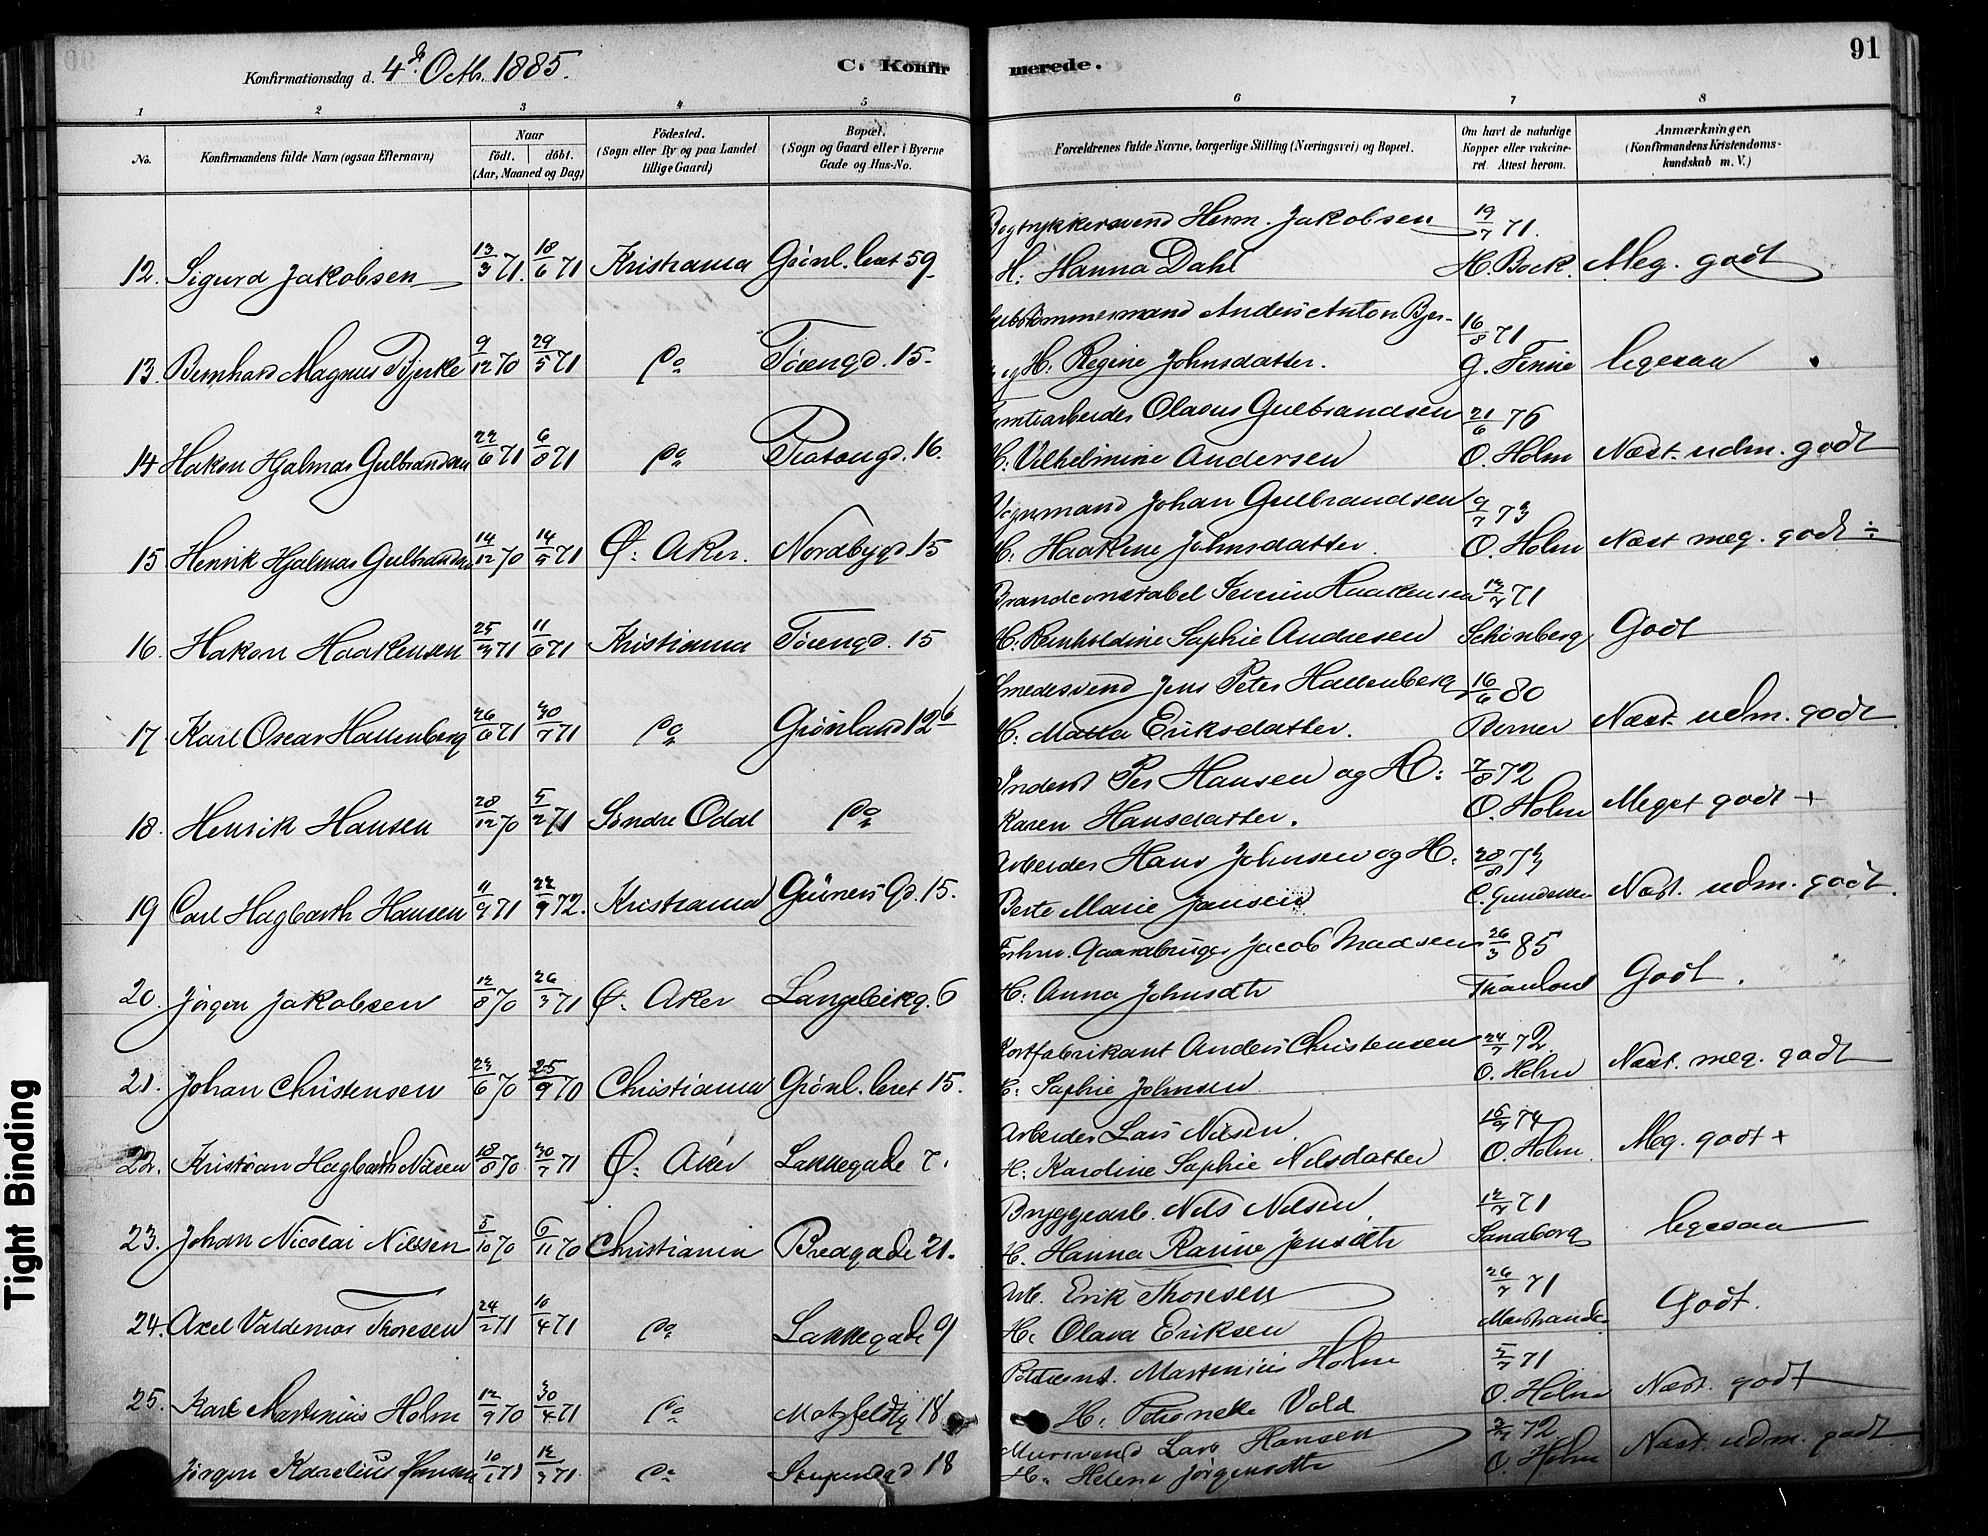 Konfirmationsdag d. 4de Octb. 1885.
C. Konfirmerede.
91
1 2 3 4 5 6 7 8
No.
Konfirmandens fulde Navn (ogsaa Efternavn)
Naar
födt. döbt.
(Aar, Maaned og Dag)
Födested.
(Sogn eller By og paa Landet
tillige Gaard)
Bopæl.
(Sogn og Gaard eller i Byerne
Gade og Hus-No.
Forældrenes fulde Navne, borgerlige Stilling (Næringsvei) og Bopæl.
Om havt de naturlige
Kopper eller vakcine-
ret Attest herom.
Anmærkninger.
(Konfirmandens Kristendoms-
kundskab m. V.)
Bogtrykkersvend Herm. Jakobsen 19/7 71.
12. Sigurd Jakobsen 13/3 71. 18/6 71 Kristiania Grönl. leret 59. H: Hanna Dahl H. Bock. Meg. godt
Anders Anton Bjer- 16/8 71
13. Bernhard Magnus Bjerke 9/12 70 29/5 71 Do Töiengd. 15. og H: Regine Johnsdatter. G. Finne ligesaa
Tomtearbeider Olavus Gulbrandsen 21/6 76
14 Hakon Hjalmar Gulbrandsen 22/6 71 6/8 71 Do Platougd. 16. H: Vilhelmine Andersen O. Holm Næst. udm. godt
Vognmand Johan Gulbrandsen 9/7 73
15 Henrik Hjalmar Gulbrandsen 14/12 70 14/5 71 Ø. Aker. Nordbygd. 15 H: Haakine Johnsdatter. O. Holm Næst meg. godt ÷
Brandconstabel Severin Haakensen 13/7 71
16. Hakon Haakensen 25/3 71 11/6 71 Kristiania Töiengd. 15 H: Reinholdine Sophie Andresen Schönberg Godt
Smedesvend Jens Peter Hallenberg 16/6 80
17 Karl Oscar Hallenberg 26/6 71 30/7 71 Do Grönland 12 b H: Matea Eriksdatter. Berner Næst. udm. godt
Inderst Per Hansen og H: 7/8 72
18. Henrik Hansen 28/12 70 5/2 71 Söndre Odal Do Karen Hansdatter. O. Holm Meget godt +
Arbeider Hans Johnsen og H. 28/8 73
19 Carl Hagbarth Hansen 11/9 71 22/9 72. Kristiania Grüners Gd. 15. Berte Marie Jansen C. Gundersen Næst. udm. godt.
Forhv. Gaardbruger Jacob Madsen 26/3 85
20. Jörgen Jakobsen 12/8 70 26/3 71 Ø. Aker Langeleikg. 6 H: Anna Johnsdtr Thaulow Godt.
Kortfabrikant Anders Christensen 24/7 72
21. Johan Christensen 23/6 70 25/9 70 Christiania Grönl. leret 15. H: Sophie Johnsen O. Holm Næst. meg. godt
Arbeider Lars Nilsen. 16/7 74
22. Kristian Hagbarth Nilsen 18/8 70 30/7 71 Ø. Aker Lakkegade 7. H: Karoline Sophie Nilsdatter O. Holm. Meg. godt +
Bryggearb. Nils Nilsen 12/7 71
23. Johan Nicolai Nilsen 5/10 70 6/11 70 Christiania Bredgade 21. H. Hanna Karine Jensdtr Sandborg ligesaa
Arb. Erik Thoresen 26/7 71
24. Axel Valdemar Thoresen 24/2 71 10/4 71 Do Lakkegade 9 H: Olava Eriksen Godt.
Martinius Holm 5/7 71
25. Karl Martinius Holm 12/9 70 30/4 71 Do Motzfeldtg 18 H: Vold O. Holm Næst. godt
Mursvend Lars Hansen 72
Jörgen Karelius Hansen 71 71 Do 18 H: Helene Jörgensdtr O. Holm Næst. udm. godt
Tight Binding